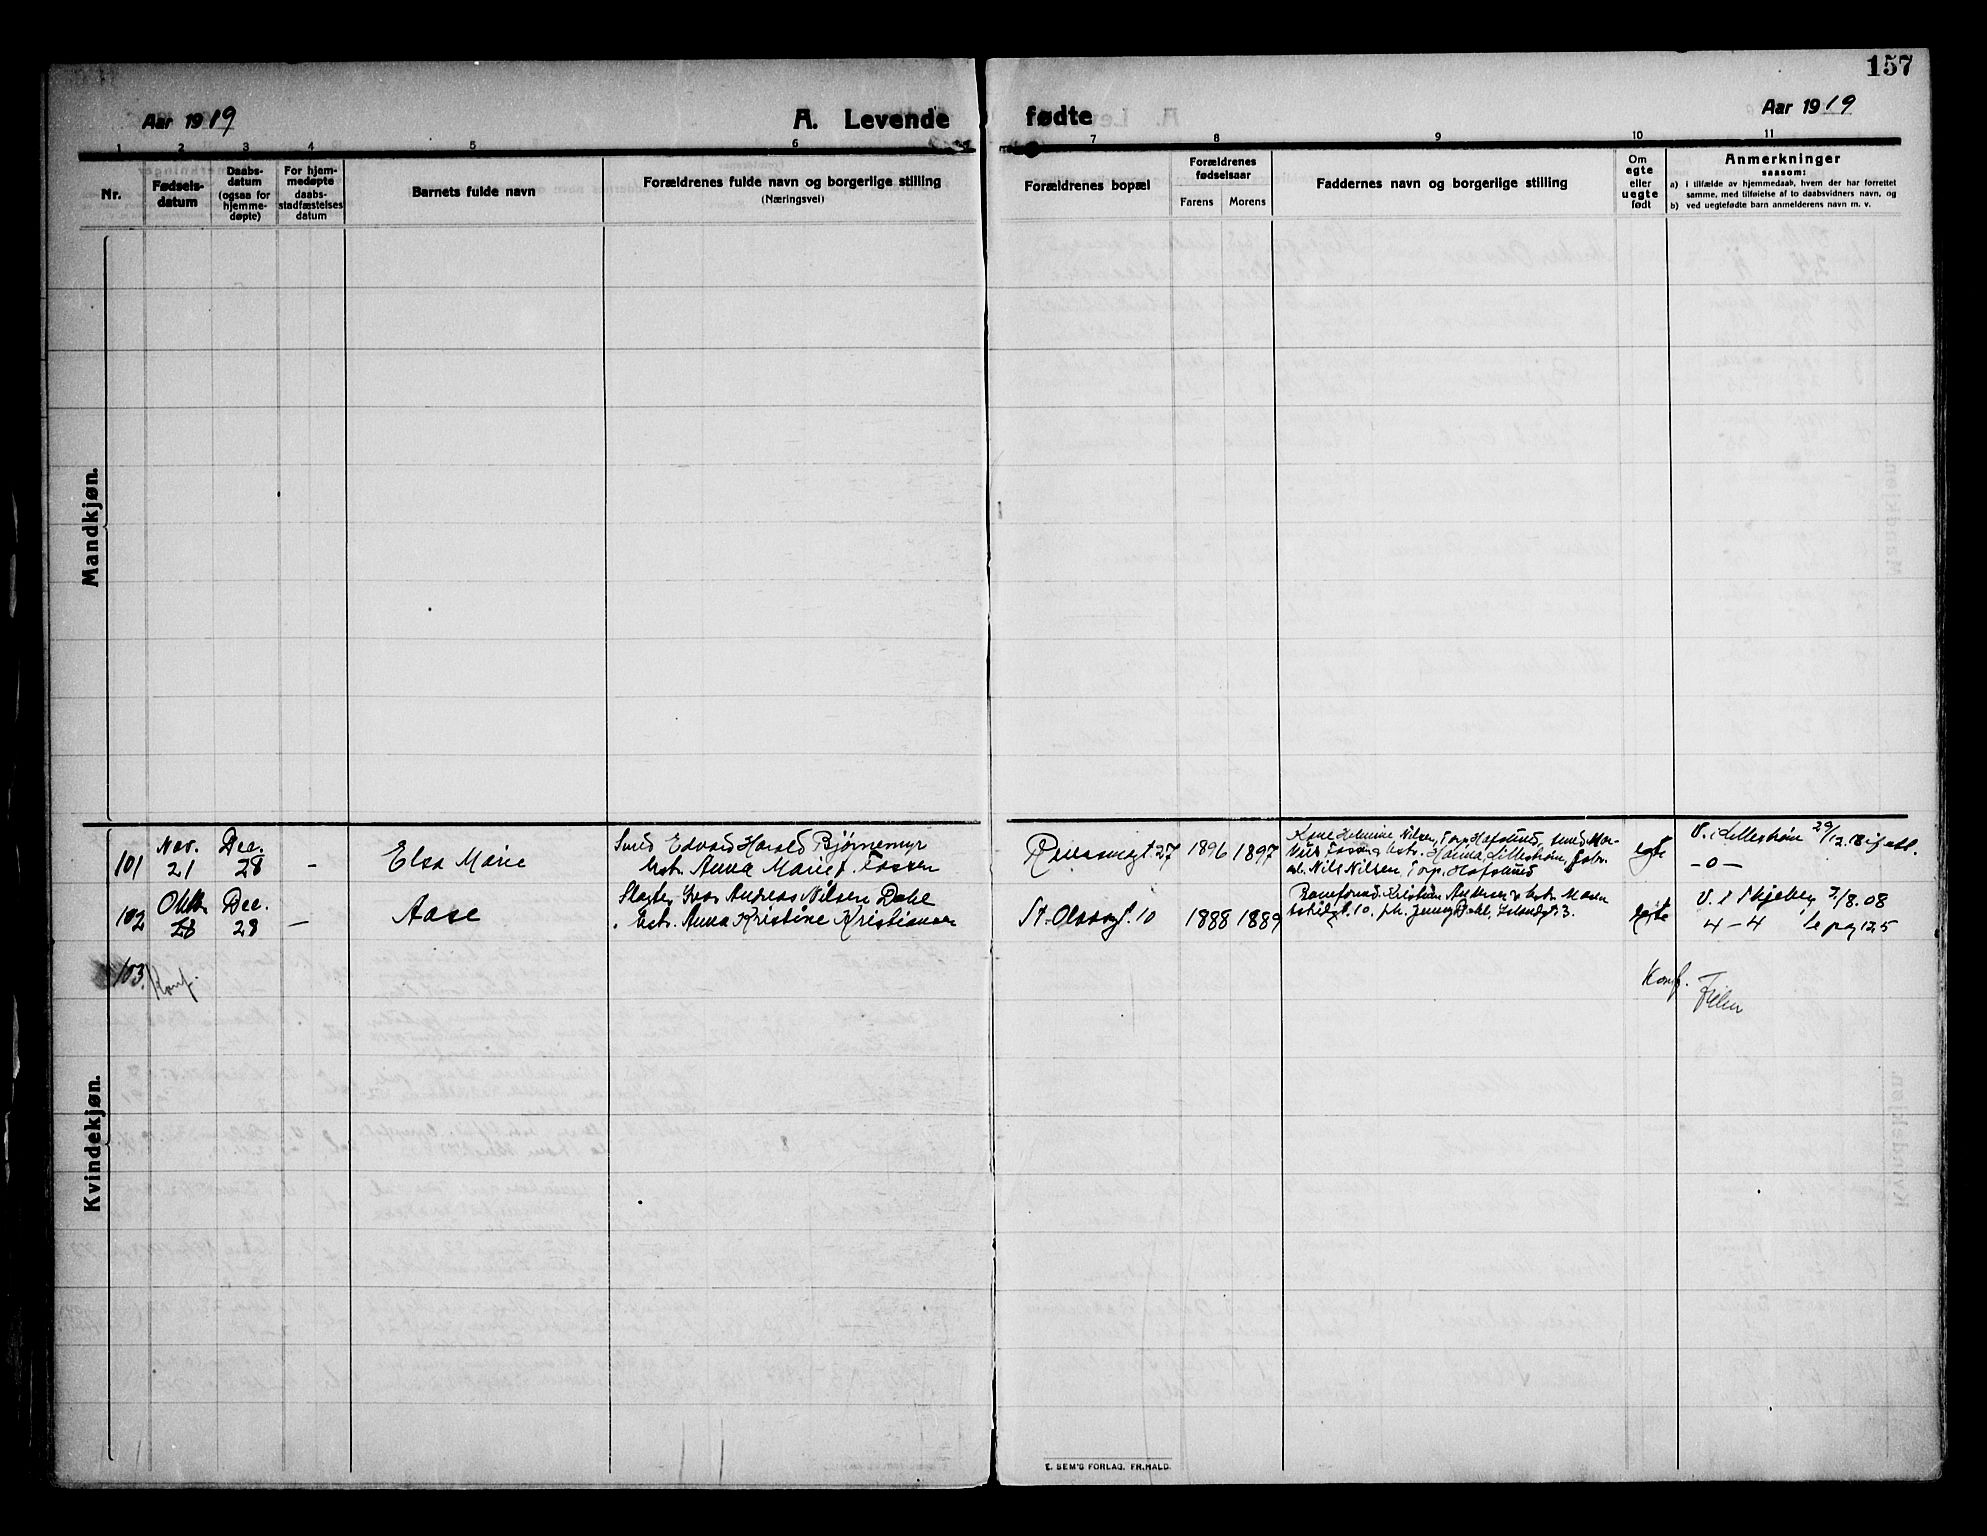 157
Aar 1919
A. Levende
fødte
Aar 1919
1 2 3 4 5 6 7 8 9 10 11
Nr.
Fødsels-
datum
Daabs-
datum
(ogsaa for
hjemme-
døpte)
For hjem-
medøpte
daabs-
stadfæstelses
datum
Barnets fulde navn
Forældrenes fulde navn og borgerlige stilling
(Næringsvei)
Forældrenes bopæl
Forældrenes
fødselsaar
Farens Morens
Faddernes navn og borgerlige stilling
Om
egte
eller
uegte
født
Anmerkninger
saasom:
a) i tilfælde av hjemmedaab, hvem der har forrettet
samme, med tilføielse af to daabsvidners navn, og
b) ved uegtefødte barn anmelderens navn m. v.
Mandkjøn.
Kvindekjøn.
101
Nov.
21
Dec.
28
–
Elsa Marie
Smed Edvard Harald Bjørnemyr
Hstr. Anna Marie f. Fossen
27
1896 1897
Kone Helmine Nilsen, Torp. Hafslund, smed
Hanna Lillestrøm,
Nils Nilsen, Torp. Hafslund
egte
V. i Lillestrøm 29/12.18
–0–
102
Okt.
28
Dec.
28
–
Aase
Andreas Nilsen Dahl
Hstr. Anna Kristine Kristiansen
St. Olavsg. 10
1888 1889
Kristian Andersen
10, Jenny Dahl, 3.
egte
V. i Skjeberg 2/8.08
4–4 Se pag 125
103.
Konf.
Konf.
E. SEM'S FORLAG. FR.HALD.